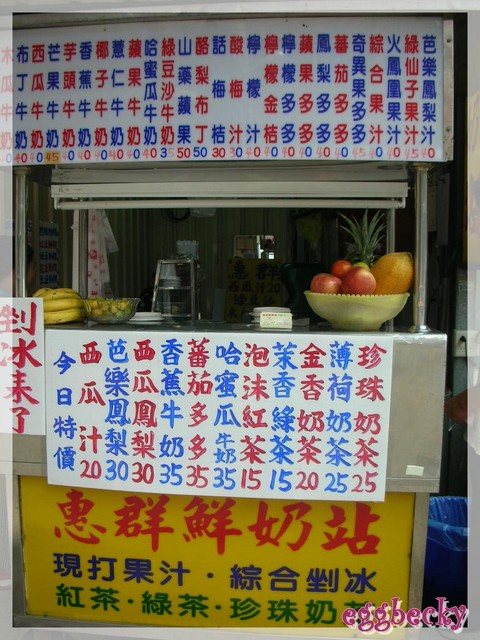 木瓜牛奶
布丁牛奶40
西瓜牛奶40
芒果牛奶45
芋頭牛奶40
香蕉牛奶40
椰子牛奶40
薏仁牛奶40
蘋果牛奶40
哈蜜瓜牛奶40
綠豆沙牛奶35
山藥蘋果50
酪梨布丁50
話梅桔30
酸梅汁30
檸檬汁40
檸檬金桔40
檸檬多多40
蘋果多多40
鳳梨多多40
蕃茄多多40
奇異果多多40
綜合果汁45
火鳳凰果汁40
綠仙子果汁45
芭樂鳳梨汁40
剉冰來了
今日特價
西瓜汁20
芭樂鳳梨30
西瓜鳳梨30
香蕉牛奶35
蕃茄多多35
哈蜜瓜牛奶35
泡沫紅茶15
茉香綠茶15
金香奶茶20
薄荷奶茶25
珍珠奶茶25
惠群鮮奶站
現打果汁·綜合剉冰
紅茶·綠茶·珍珠奶
eggbecky